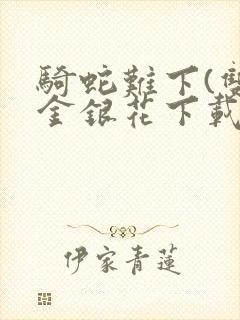 騎蛇難下(雙
金銀花下載
伊家青蓮